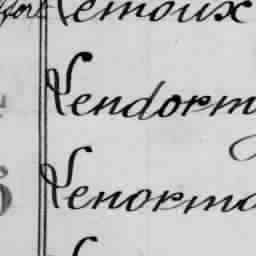 Lemoux
Lendorm
Lenorma